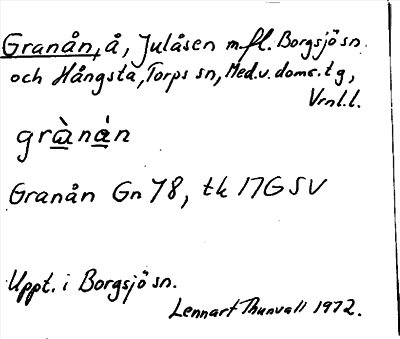 Granån, å, Julåsen m.fl. Borgsjö sn.
och Hångsta, Torps sn, Med.v. doms.tg,
Vrnl.l.
grànán
Granån Gn 78, tk 17G SV
Uppt. i Borgsjö sn.
Lennart Thunvall 1972.